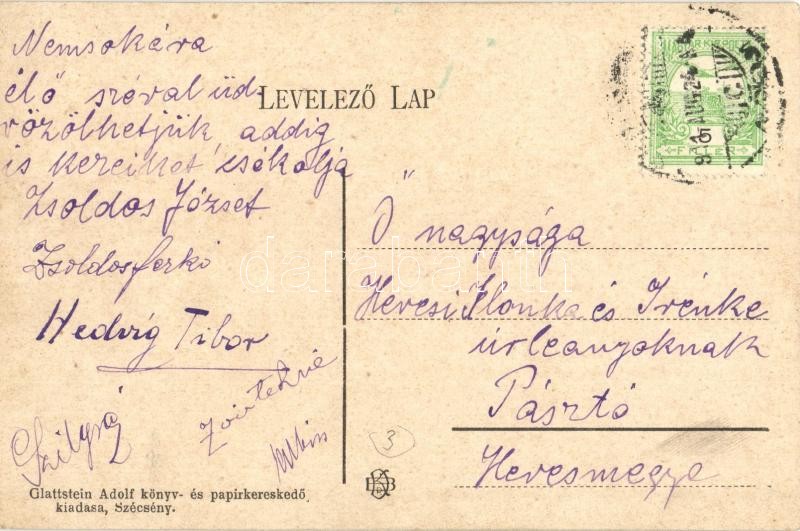 Nemsokára
élő szóval üd
vözölhetjük addig
is kezeiket csókolja
Zsoldos József
Zsoldos ferkó
Hedvig Tibor
LEVELEZŐ LAP
MAGYAR KIR. POSTA
5
FILLÉR
Ő nagysága
Hevesi Ilonka és Irénke
úrleanyoknak
Pásztó
Hevesmegye
3
Glattstein Adolf könyv- és papirkereskedő
kiadasa, Szécsény.
darabanth